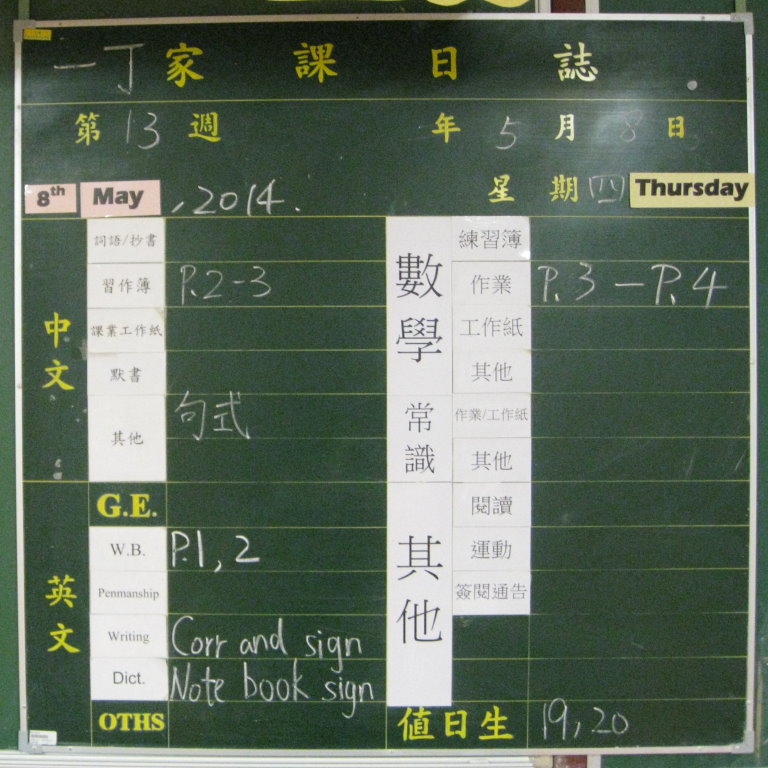 一丁家課日誌
第13週 年5月8日
8th May, 2014. 星期四 Thursday
中文
詞語/抄書
習作簿 P.2-3
課業工作紙
默書
其他 句式
英文
G.E.
W.B. P.1, 2
Penmanship
Writing Corr and sign
Dict. Note book sign
OTHS
數學
練習簿
作業 P.3 — P.4
工作紙
其他
常識
作業/工作紙
其他
其他
閱讀
運動
簽閱通告
值日生 19,20